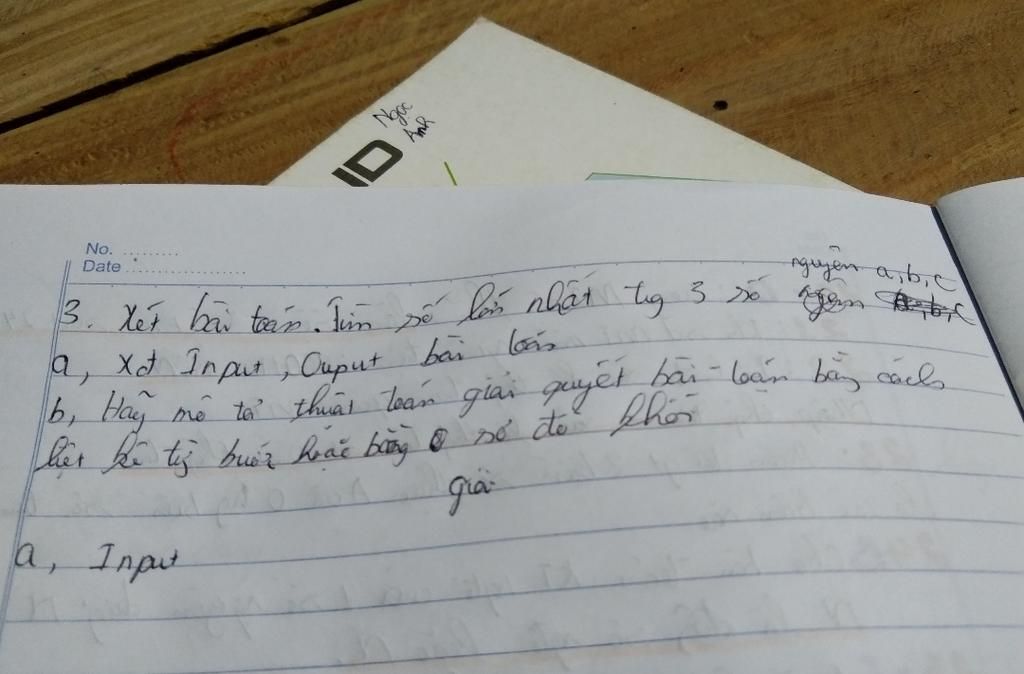 Ngọc
Anh
ND
No. .........
Date ......................
nguyên a, b, c
3. Xét bài toán. Tìm số lớn nhất tg 3 số
a, Xđ Input, Ouput bài toán
b, Hãy mô tả thuật toán giải quyết bài toán bằng cách
liệt kê từg bước hoặc bằng sơ đồ khối
giải
a, Input